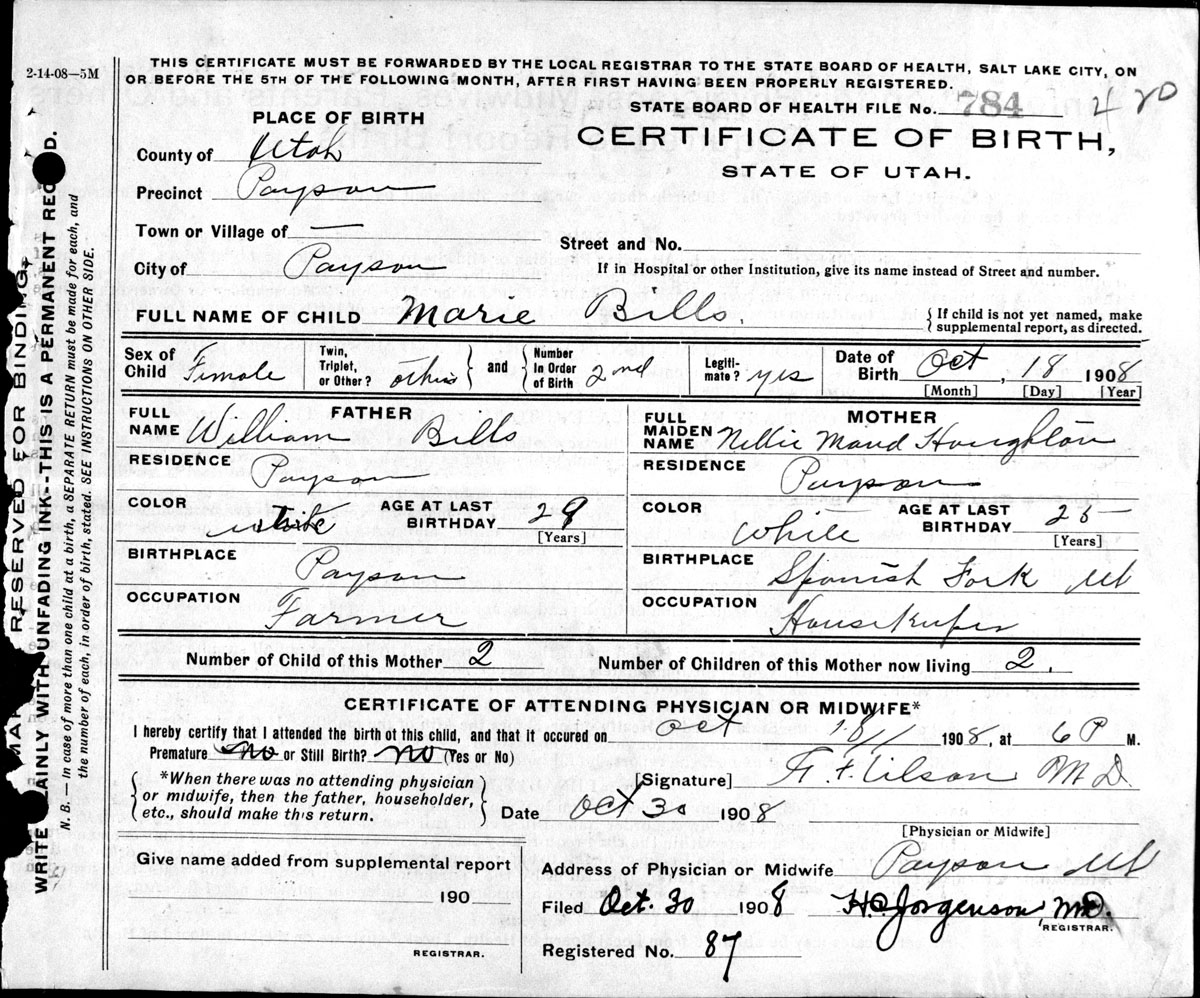 2-14-08—5M
THIS CERTIFICATE MUST BE FORWARDED BY THE LOCAL REGISTRAR TO THE STATE BOARD OF HEALTH, SALT LAKE CITY, ON
OR BEFORE THE 5TH OF THE FOLLOWING MONTH, AFTER FIRST HAVING BEEN PROPERLY REGISTERED.
STATE BOARD OF HEALTH FILE No. 784
PLACE OF BIRTH
CERTIFICATE OF BIRTH,
STATE OF UTAH.
County of Utah
Precinct Payson
Town or Village of —
Street and No.
City of Payson
If in Hospital or other Institution, give its name instead of Street and number.
FULL NAME OF CHILD Marie Bills. { If child is not yet named, make
supplemental report, as directed.
Sex of Child Female Twin, Triplet, or Other? others } and { Number In Order of Birth 2nd Legiti-mate? yes Date of Birth Oct, 18 1908
[Month] [Day] [Year]
FATHER
FULL NAME William Bills
RESIDENCE Payson
COLOR white AGE AT LAST BIRTHDAY 29
[Years]
BIRTHPLACE Payson
OCCUPATION Farmer
MOTHER
FULL MAIDEN NAME Nellie Maud Houghton
RESIDENCE Payson
COLOR White AGE AT LAST BIRTHDAY 25
[Years]
BIRTHPLACE Spanish Fork Ut
OCCUPATION Housekeeper
Number of Child of this Mother 2 Number of Children of this Mother now living 2.
CERTIFICATE OF ATTENDING PHYSICIAN OR MIDWIFE*
I hereby certify that I attended the birth of this child, and that it occured on Oct 18 1908, at 6 P M.
Premature No or Still Birth? No (Yes or No)
*When there was no attending physician
or midwife, then the father, householder,
etc., should make this return.
[Signature] M D.
Date Oct 30 1908
[Physician or Midwife]
Give name added from supplemental report
190
REGISTRAR.
Address of Physician or Midwife Payson Ut
Filed Oct. 30 1908 Jorgenson MD.
REGISTRAR.
Registered No. 87
RESERVED FOR BINDING
WRITE AINLY WITH UNFADING INK--THIS IS A PERMANENT REC D.
N. B.—In case of more than one child at a birth, a SEPARATE RETURN must be made for each, and
the number of each, in order of birth, stated. SEE INSTRUCTIONS ON OTHER SIDE.